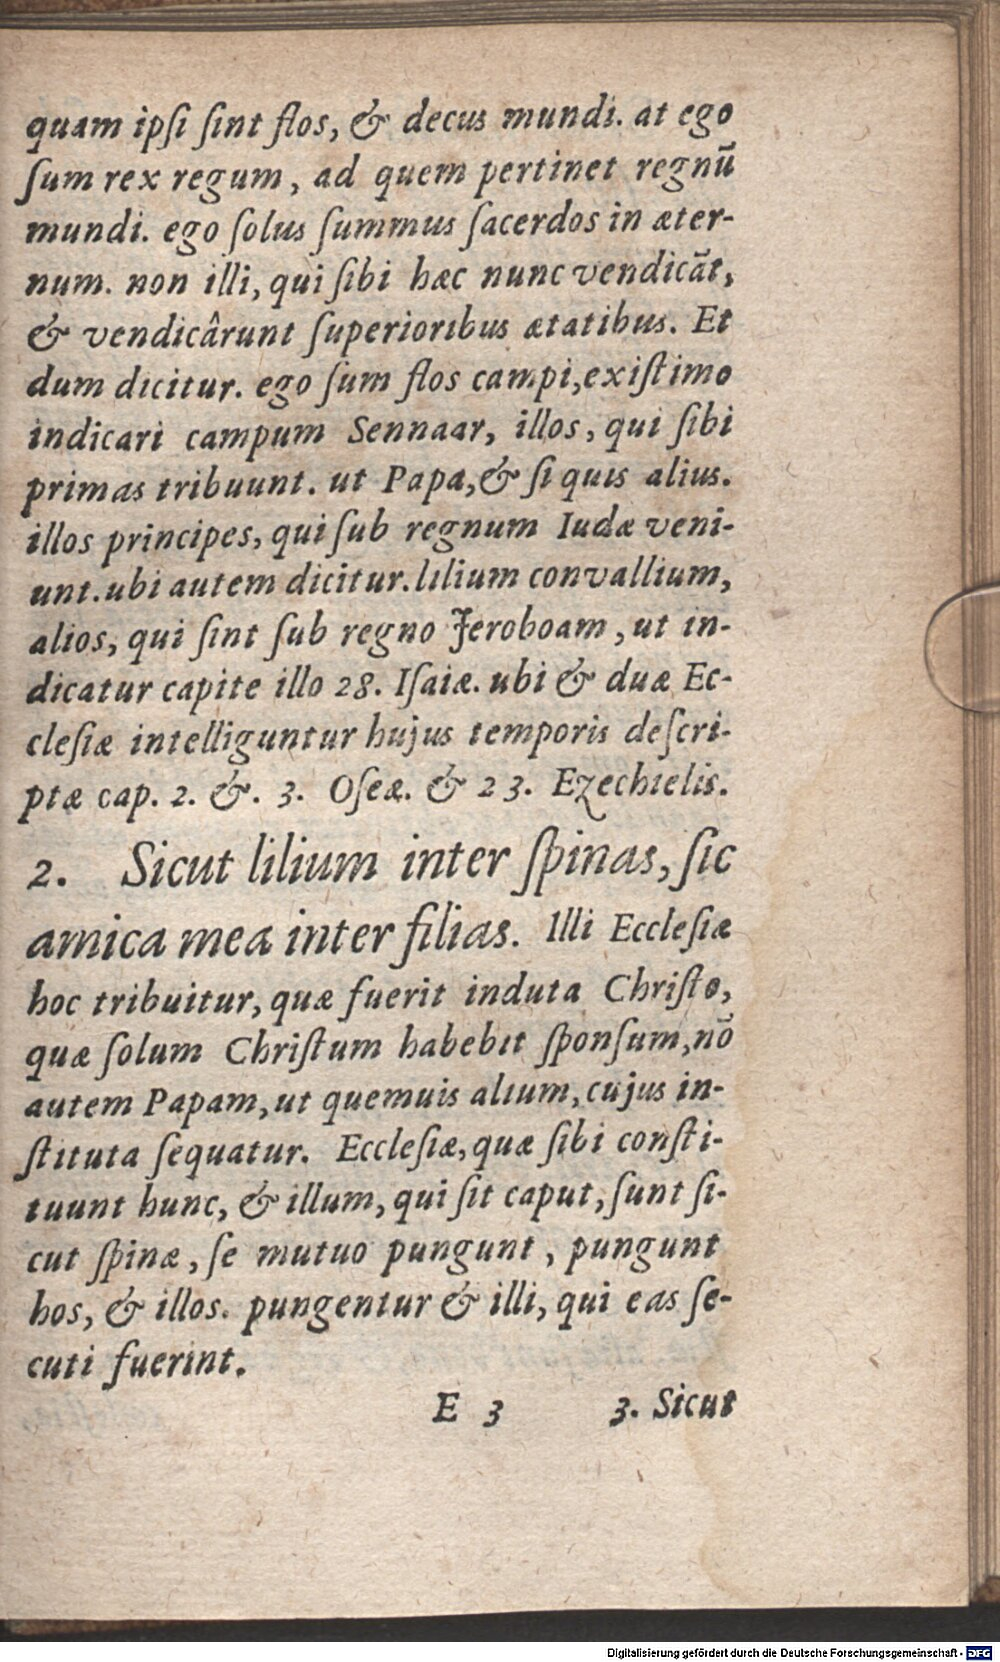 quam ipſi ſint flos, & decus mundi. at ego
ſum rex regum, ad quem pertinet regnū
mundi. ego ſolus ſummus ſacerdos in æter-
num. non illi, qui ſibi hæc nunc vendicāt,
& vendicârunt ſuperioribus ætatibus. Et
dum dicitur. ego ſum flos campi, exiſtimo
indicari campum Sennaar, illos, qui ſibi
primas tribuunt. ut Papa, & ſi quis alius.
illos principes, qui ſub regnum Iudæ veni-
unt. ubi autem dicitur. lilium convallium,
alios, qui ſint ſub regno Jeroboam, ut in-
dicatur capite illo 28. Iſaiæ. ubi & duæ Ec-
cleſiæ intelliguntur hujus temporis deſcri-
ptæ cap. 2. &. 3. Oſeæ. & 23. Ezechielis.
2. Sicut lilium inter ſpinas, ſic
amica mea inter filias. Illi Eccleſiæ
hoc tribuitur, quæ fuerit induta Chriſto,
quæ ſolum Chriſtum habebit ſponſum, nō
autem Papam, ut quemuis alium, cujus in-
ſtituta ſequatur. Eccleſiæ, quæ ſibi conſti-
tuunt hunc, & illum, qui ſit caput, ſunt ſi-
cut ſpinæ, ſe mutuo pungunt, pungunt
hos, & illos. pungentur & illi, qui eas ſe-
cuti fuerint.
E 3 3. Sicut
Digitalisierung gefördert durch die Deutsche Forschungsgemeinschaft - DFG